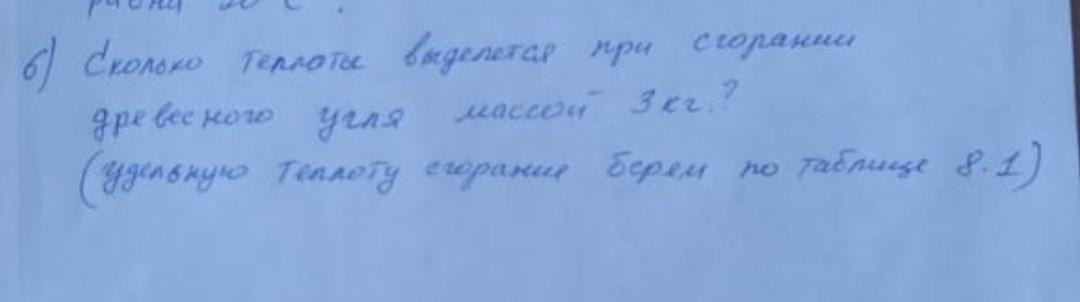 равна 20°C.
б) Сколько теплоты выделется при сгорании
древесного угля массой 3 кг.?
(удельную теплоту сгорание берем по таблице 8.1)